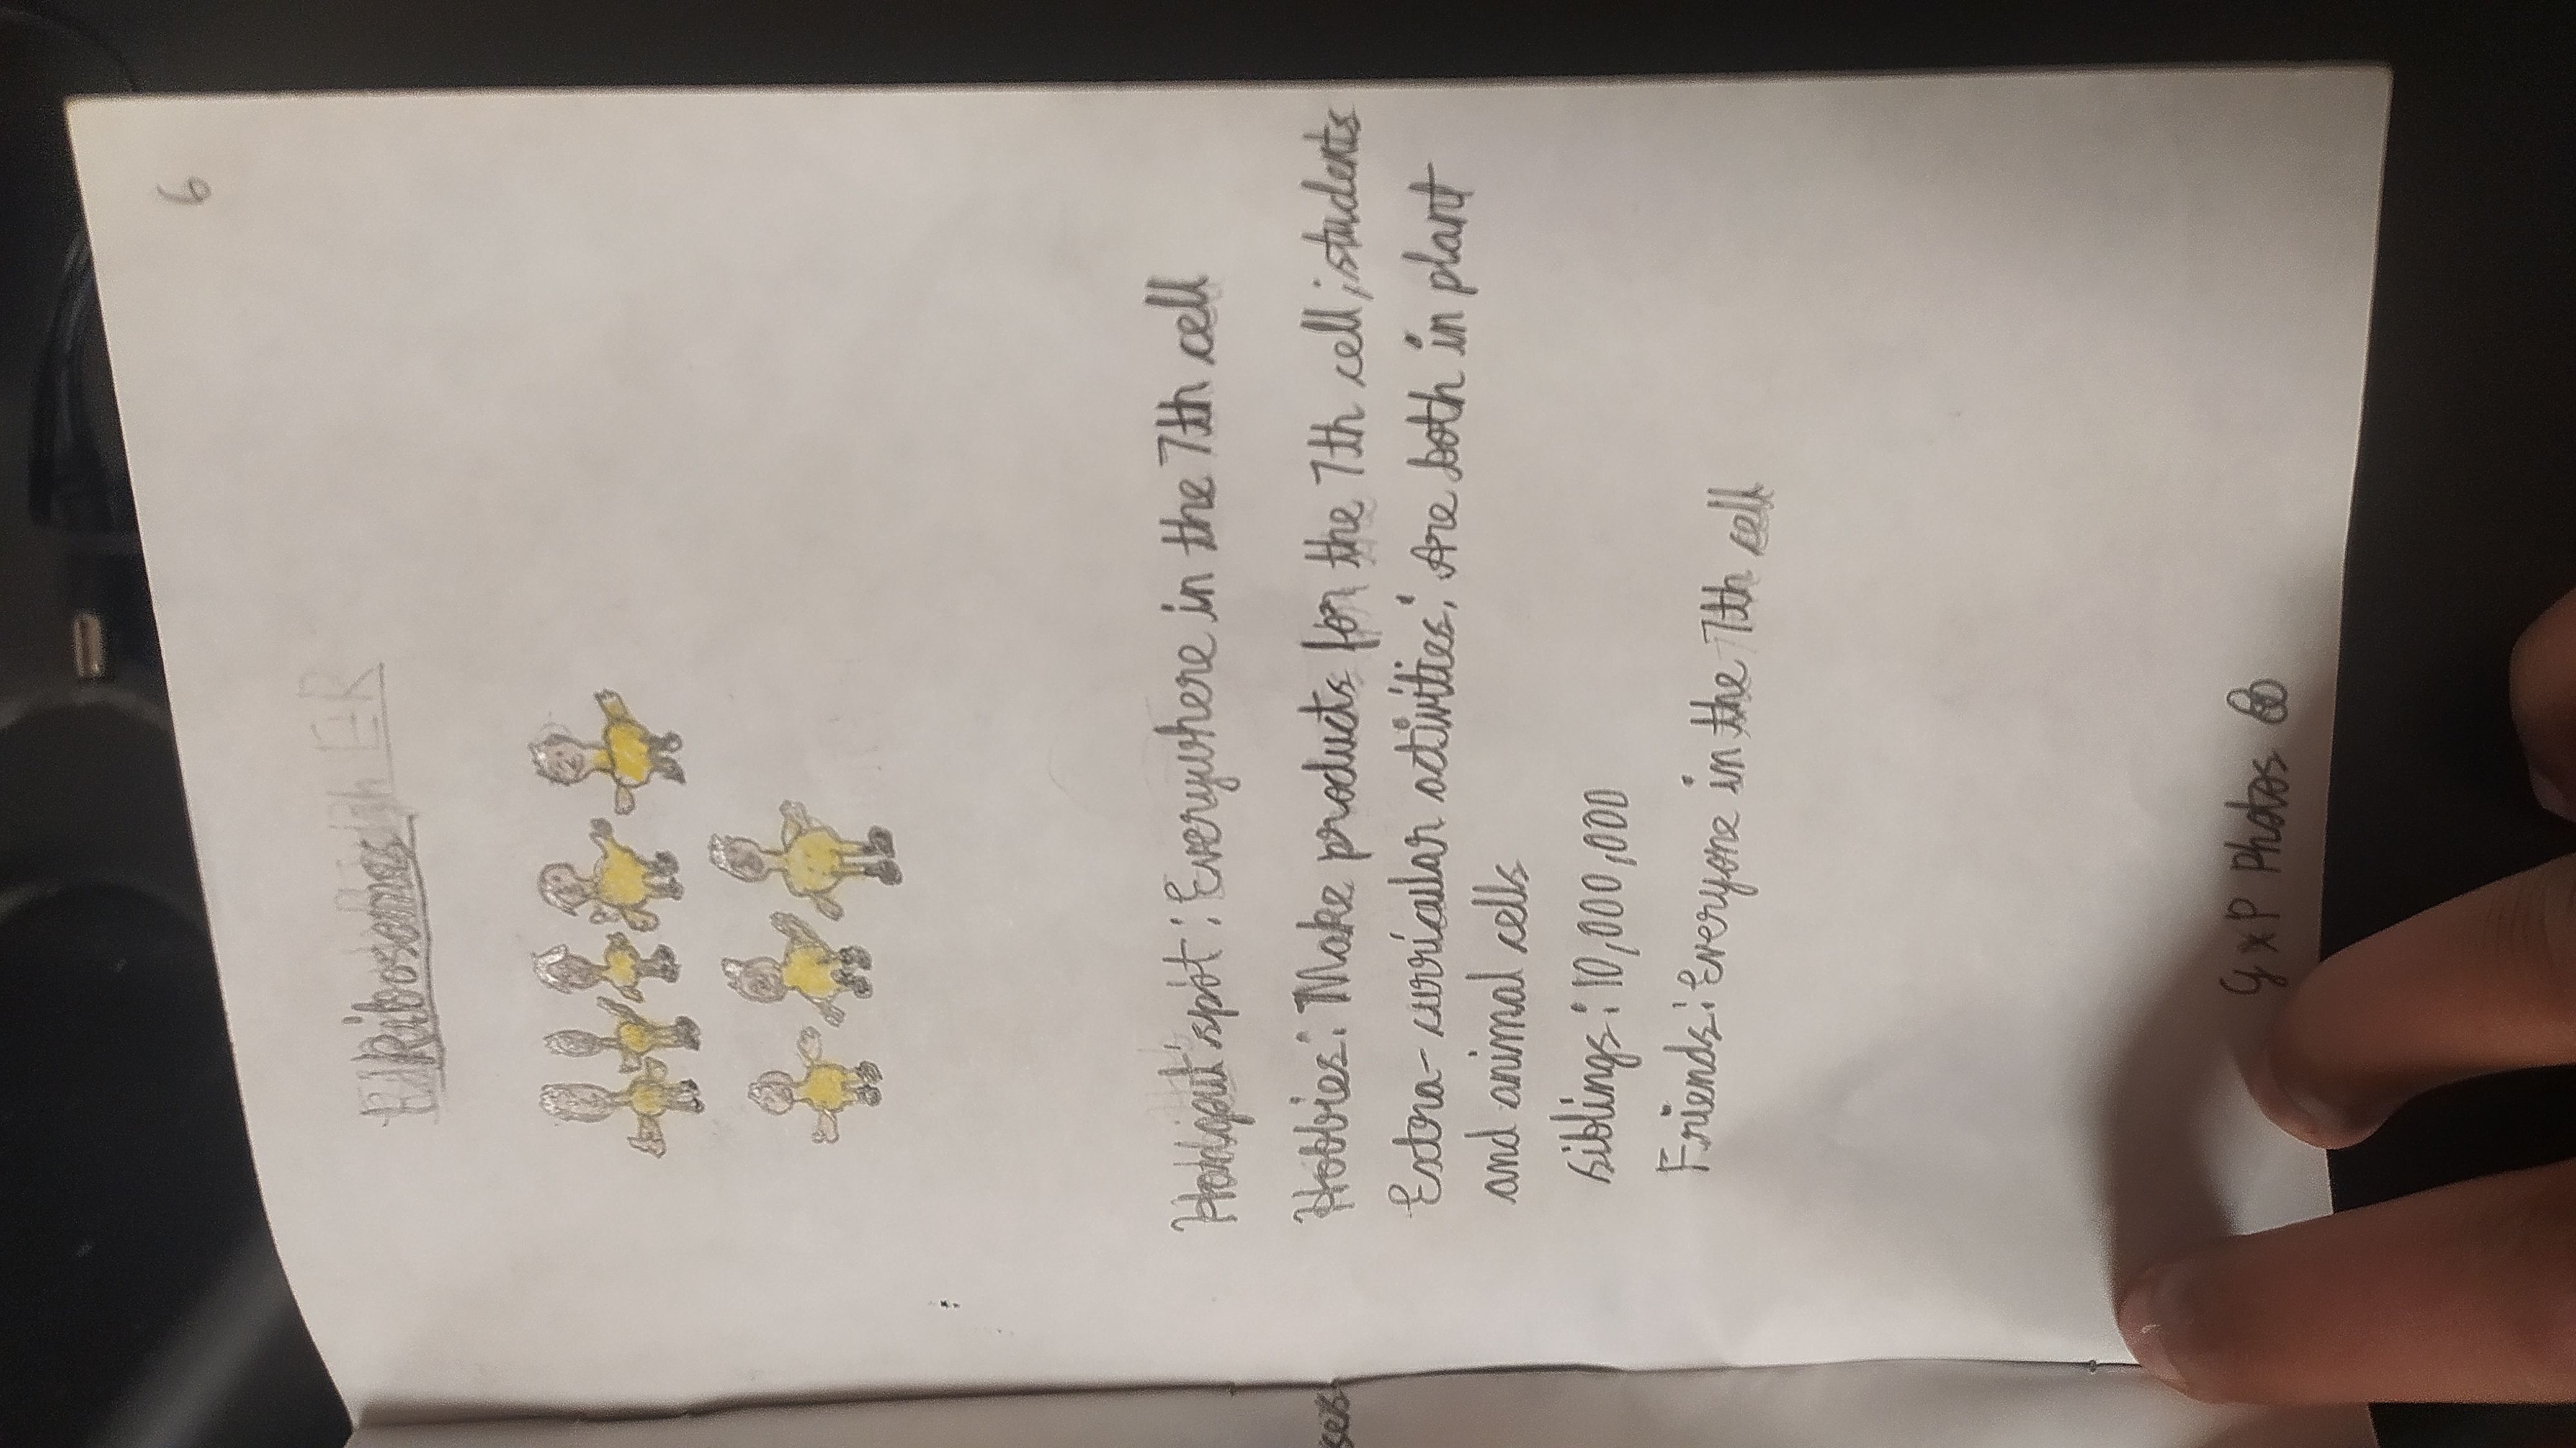 6
Ribosomes
Hangout spot: Everywhere in the 7th cell
Hobbies: Make products for the 7th cell, students
Extra-curricular activities: Are both in plant
and animal cells
siblings: 10,000,000
Friends: Everyone in the 7th cell
ses